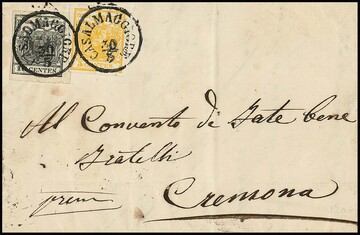 CASALMAGGIORE
30/5
30/5
10 CENTES
Al Convento di Fate bene
Fratelli
Cremona